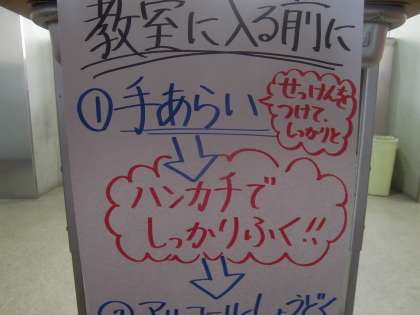 教室に入る前に
①手あらい
せっけんを
つけて、
しっかりと
ハンカチで
しっかりふく!!
②アルコールしょうどく